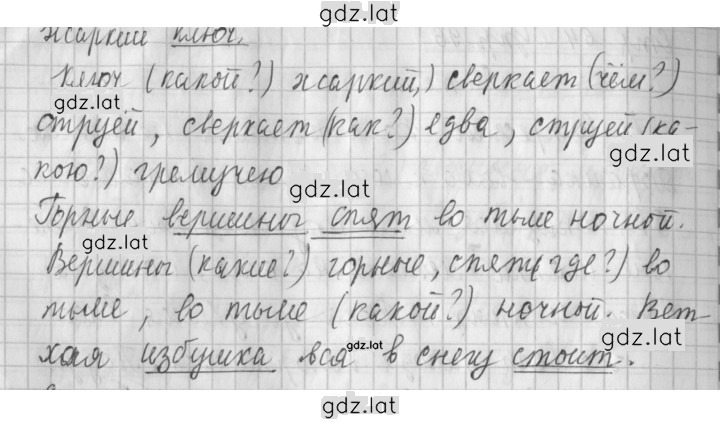 gdz.lat
жаркий ключ.
Ключ (какой?) жаркий,) сверкает (чем?)
gdz.lat
струей, сверкает (как?) едва, струей (ка-
gdz.lat
кою?) гремучею
gdz.lat
Горные вершины спят во тьме ночной.
gdz.lat
Вершины (какие?) горные, спят( где?) во
тьме, во тьме (какой?) ночной. Вет-
gdz.lat
хая избушка вся в снегу стоит.
gdz.lat
gdz.lat